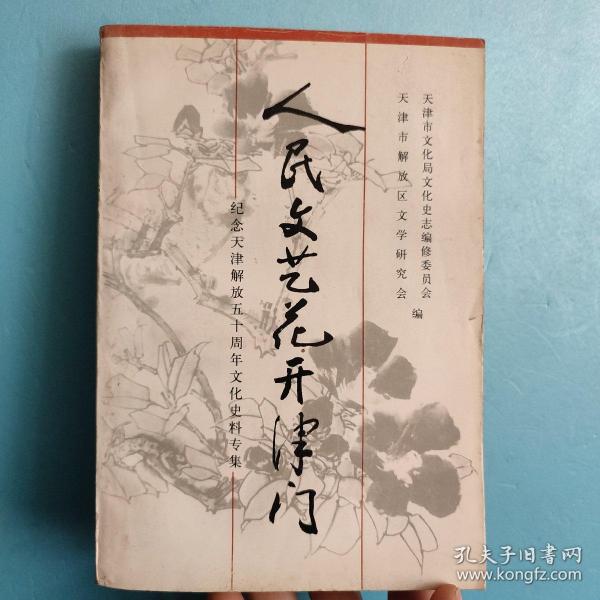 人民文艺花开津门
纪念天津解放五十周年文化史料专集
天津市文化局文化史志编修委员会
天津市解放区文学研究会
编
孔夫子旧书网
www.kongfz.com